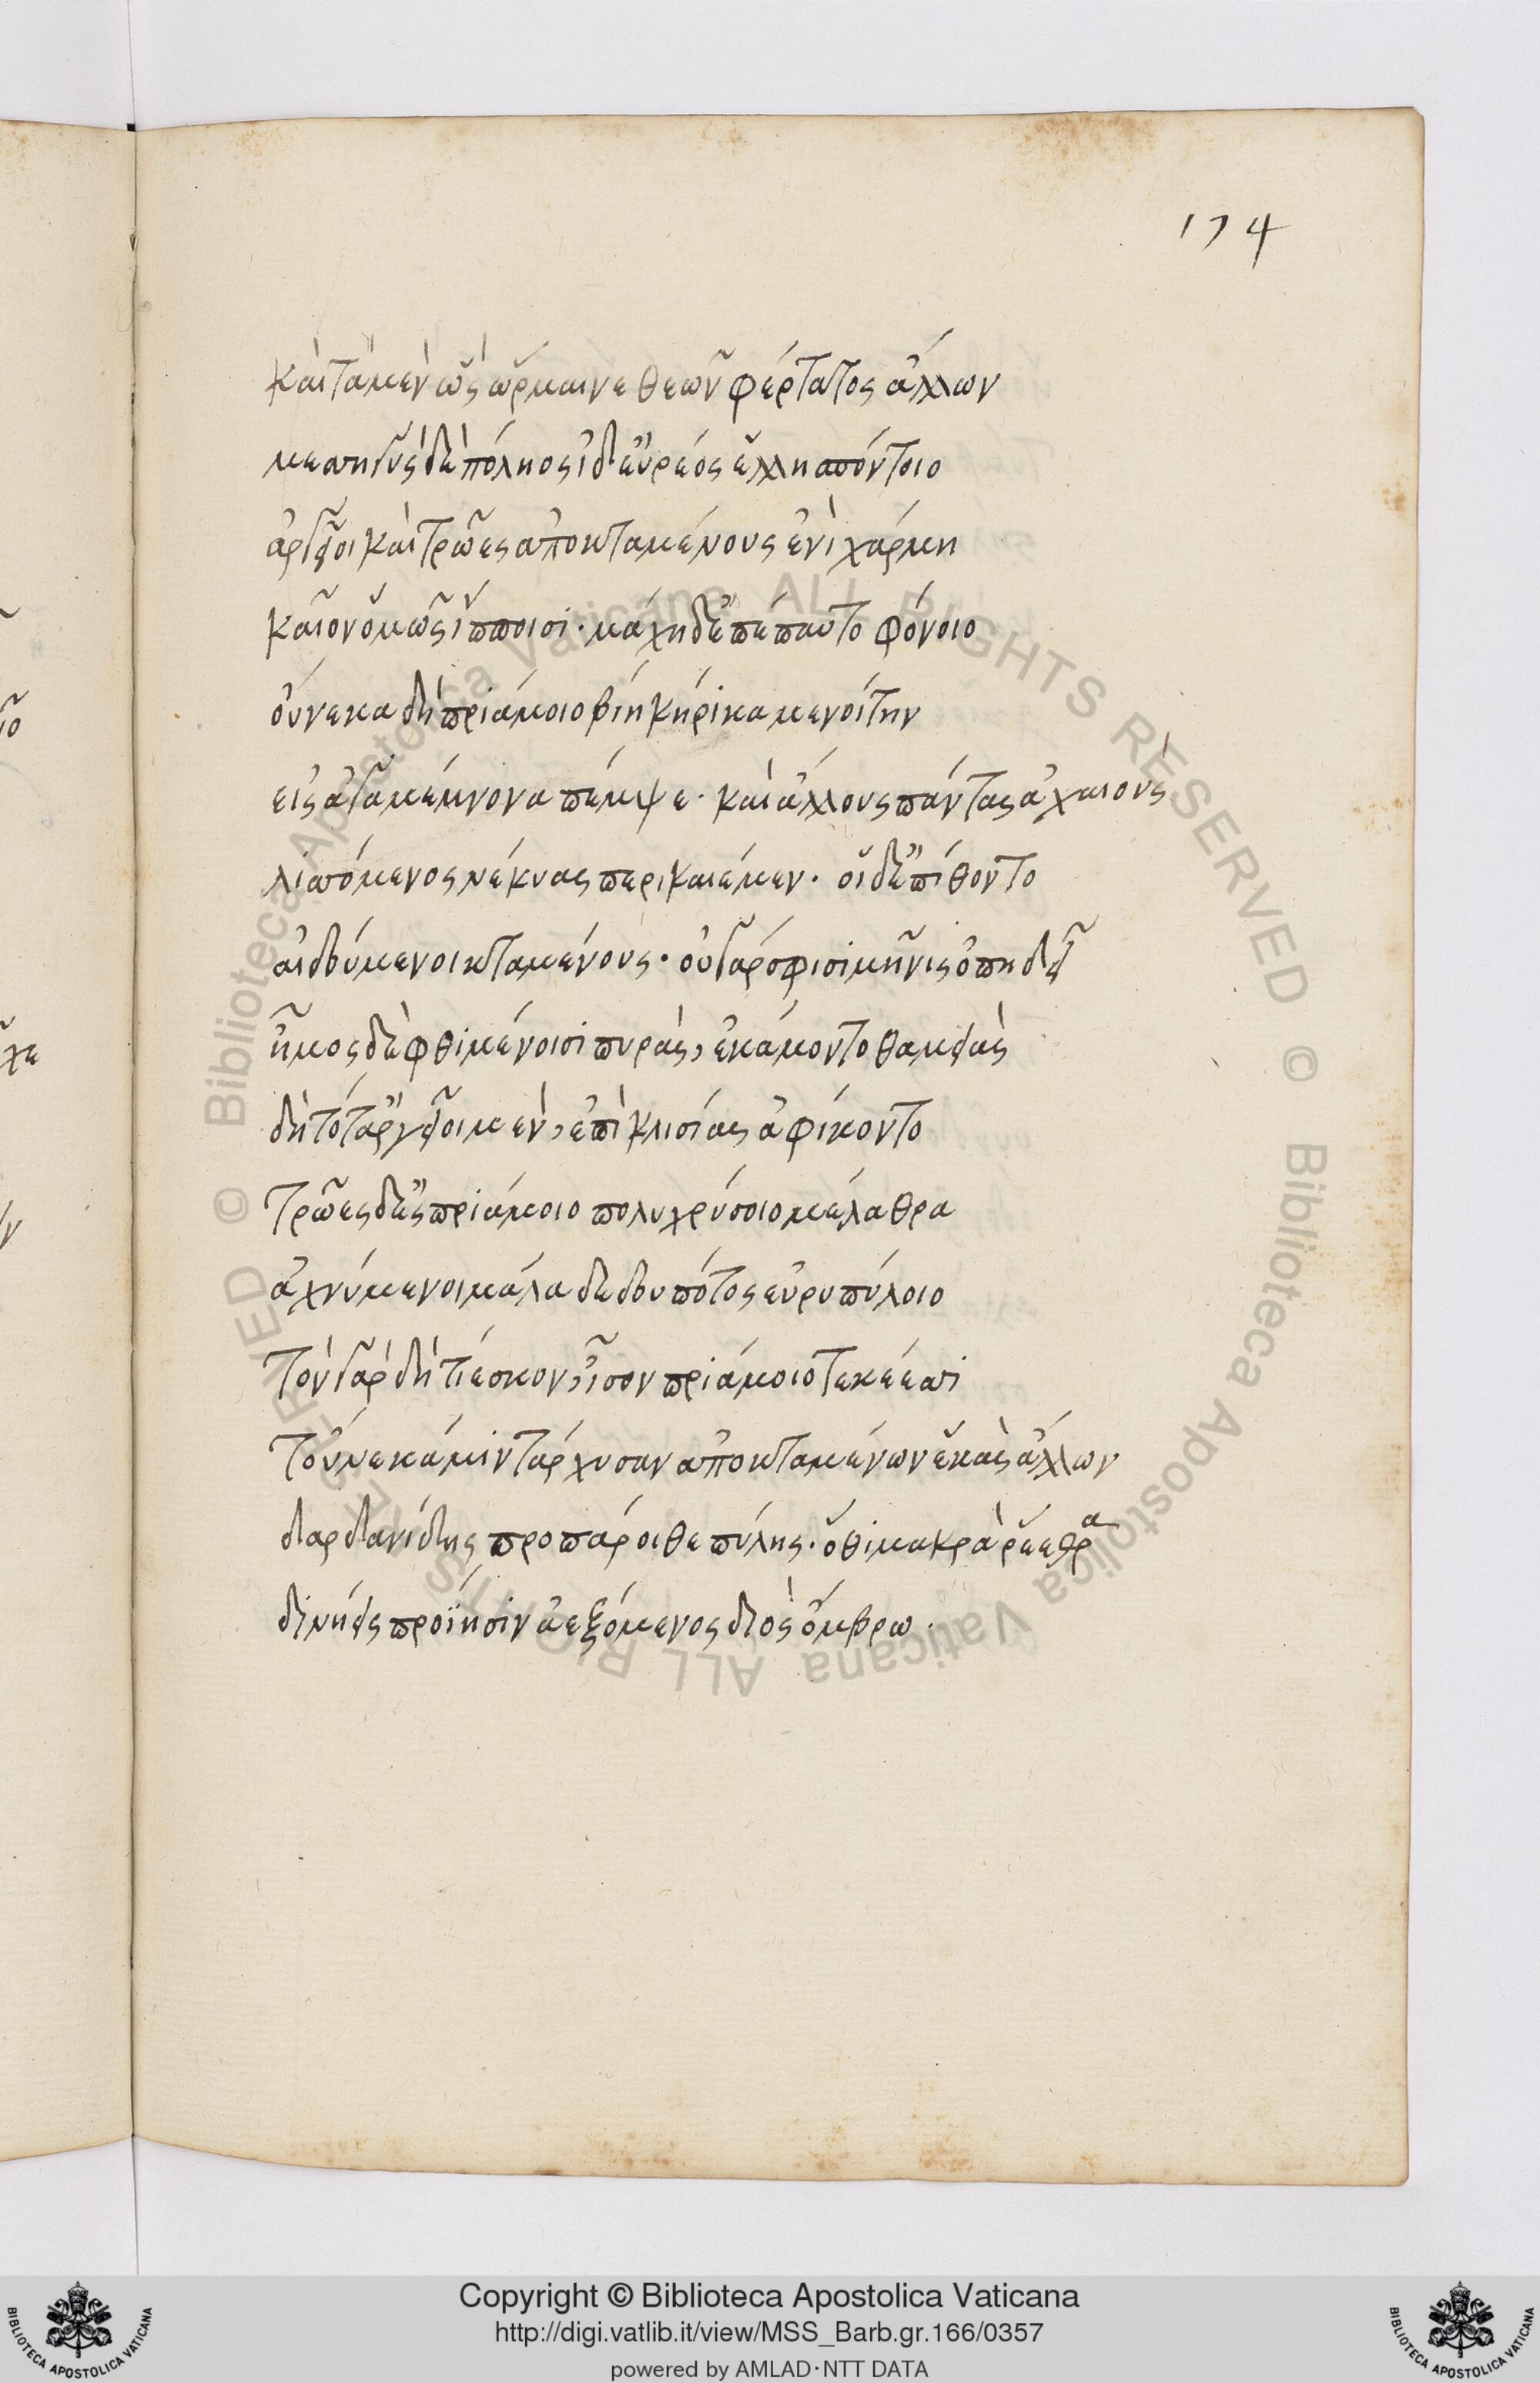 174
καὶ τὰ μὲν ὣς ὥρμαινε θεῶν φέρτατος ἄλλων
μεσηγὺς δὲ πόληος ἰδ' εὐρέος ἑλλησπόντοιο
ἀργεῖοι καὶ τρῶες ἀποκταμένους ἐνὶ χάρμη
καῖον ὁμῶς ἵπποισι· μάχη δ' ἐπέπαυτο φόνοιο
οὕνεκα δὴ πριάμοιο βίη κήρυκα μενοίτην
εἰς ἀγαμέμνονα πέμψε· καὶ ἄλλους πάντας ἀχαιοὺς
λισσόμενος νέκυας περικαιέμεν· οἱ δ' ἐπίθοντο
αἰδούμενοι κταμένους· οὐ γάρ σφισι μῆνις ὀπηδεῖ
ἦμος δὲ φθιμένοισι πυρὰς, ἐκάμοντο θαμειὰς
δὴ τότ' ἀργεῖοι μὲν, ἐπὶ κλισίας ἀφίκοντο
τρῶες δ' ἐς πριάμοιο πολυχρύσοιο μέλαθρα
ἀχνύμενοι μάλα δεδουπότος εὐρυπύλοιο
τὸν γὰρ δὴ τίεσκον, ἶσον πριάμοιο τεκέεσσι
τοὔνεκά μιν ταρχυσαν ἀποκταμένων ἑκὰς ἄλλων
δαρδανίδης προπάροιθε πύλης· ὅθι μακρὰ ῥέεθρα
δινήεις προΐησιν ἀεξόμενος διὸς ὄμβρω·
χε
Copyright © Biblioteca Apostolica Vaticana
http://digi.vatlib.it/view/MSS_Barb.gr.166/0357
powered by AMLAD·NTT DATA
BIBLIOTECA APOSTOLICA VATICANA
BIBLIOTECA APOSTOLICA VATICANA
© Biblioteca Apostolica Vaticana ALL RIGHTS RESERVED © Biblioteca Apostolica Vaticana ALL RIGHTS RESERVED